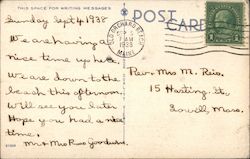 THIS SPACE FOR WRITING MESSAGES
POST CARD
Sunday Sept 4 1938
We are having a
nice time up here
We are down to the
beach this afternoon.
Will see you later
Hope you had a nice
time.
Mr & Mrs Russ
OLD ORCHARD BEACH
7 AM
1938
MAINE
1
Mrs M. Reis.
15 Hastings St.
Lowell, Mass.